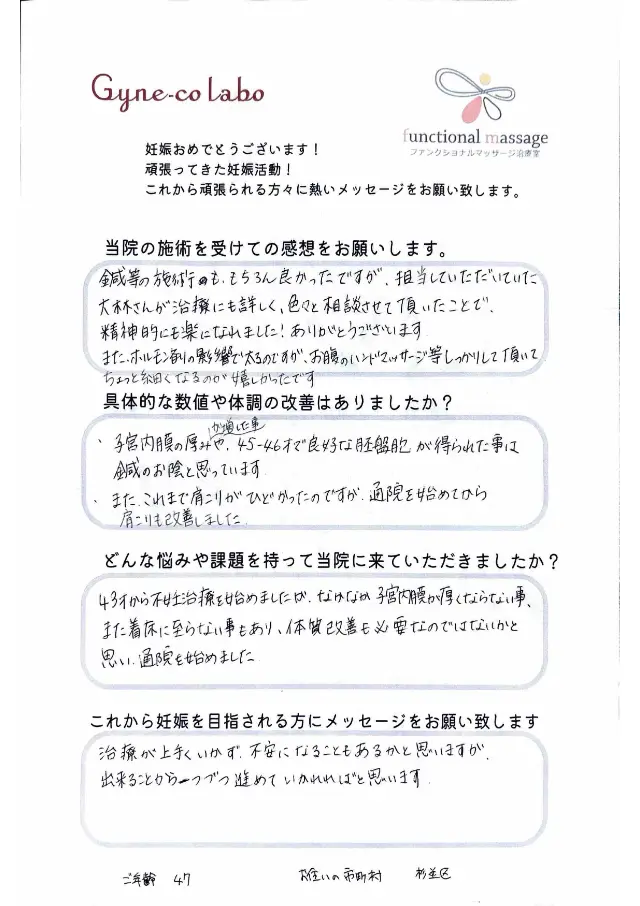 Gyne-co labo
functional massage
ファンクショナルマッサージ治療室
妊娠おめでとうございます！
頑張ってきた妊娠活動！
これから頑張られる方々に熱いメッセージをお願い致します。
当院の施術を受けての感想をお願いします。
鍼等の施術も、もちろん良かったですが、担当していただいていた
大林さんが治療にも詳しく、色々と相談させて頂いたことで、
精神的にも楽になれました！ありがとうございます
また、ホルモン剤の影響で太るのですが、お腹のハンドマッサージ等しっかりして頂いて
ちょっと細くなるのが嬉しかったです
具体的な数値や体調の改善はありましたか？
が増した事
・子宮内膜の厚みや、45-46才で良好な胚盤胞が得られた事は
鍼のお陰と思っています
・また、これまで肩こりがひどかったのですが、通院を始めてから
肩こりも改善しました
どんな悩みや課題を持って当院に来ていただきましたか？
43才から不妊治療を始めましたが、なかなか子宮内膜が厚くならない事、
また着床に至らない事もあり、体質改善も必要なのではないかと
思い、通院を始めました
これから妊娠を目指される方にメッセージをお願い致します
治療が上手くいかず、不安になることもあるかと思いますが、
出来ることから一つづつ進めていかれればと思います
ご年齢 47 お住いの市町村 杉並区